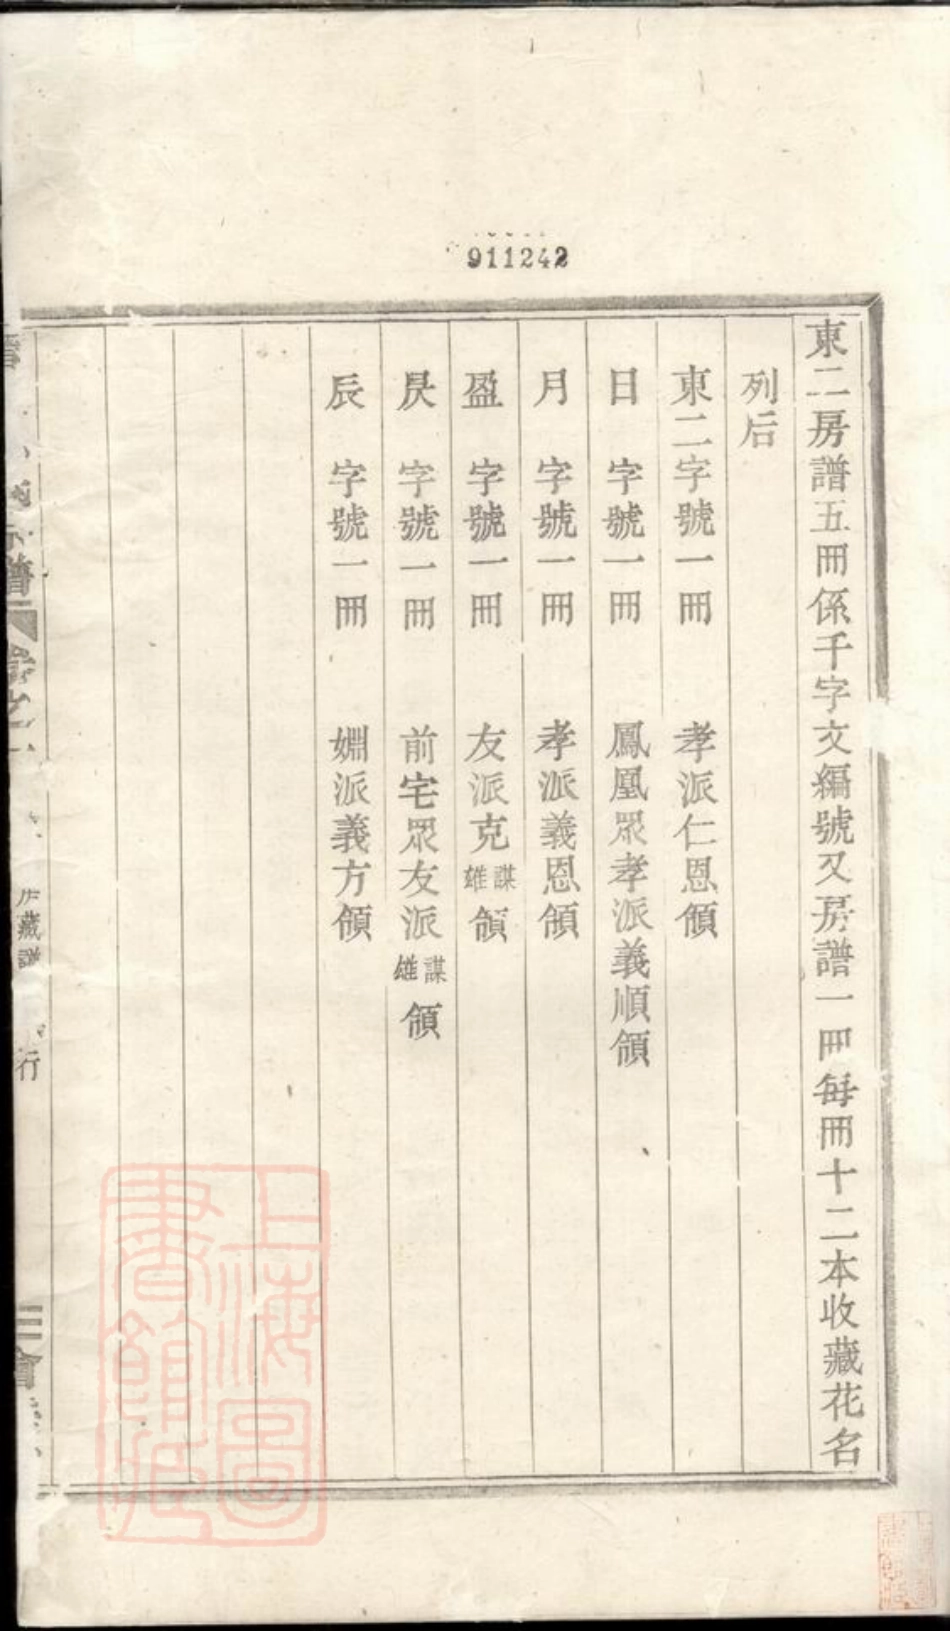 911242
東二房譜五冊係千字文編號又房譜一冊每冊十二本收藏花名
列后
東二字號一冊 孝派仁恩領
日 字號一冊 鳳凰眾孝派義順領
月 字號一冊 孝派義恩領
盈 字號一冊 友派克謀雄領
昃 字號一冊 前宅眾友派謀雄領
辰 字號一冊 婣派義方領
藏譜
行
上海圖書館藏